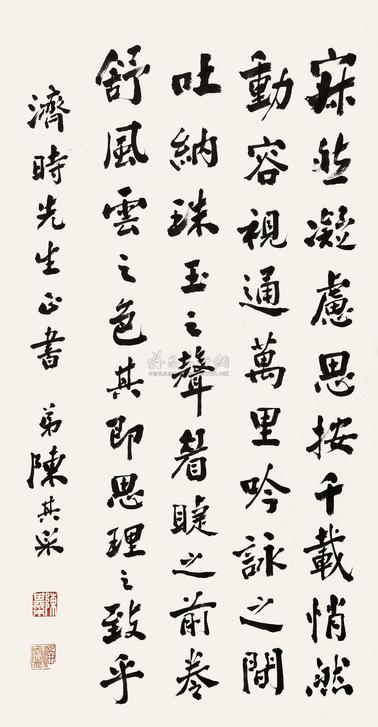 寂然凝慮思接千載悄然
動容視通萬里吟詠之間
吐納珠玉之聲眉睫之前卷
舒風雲之色其即思理之致乎
濟時先生正書 弟陳其采